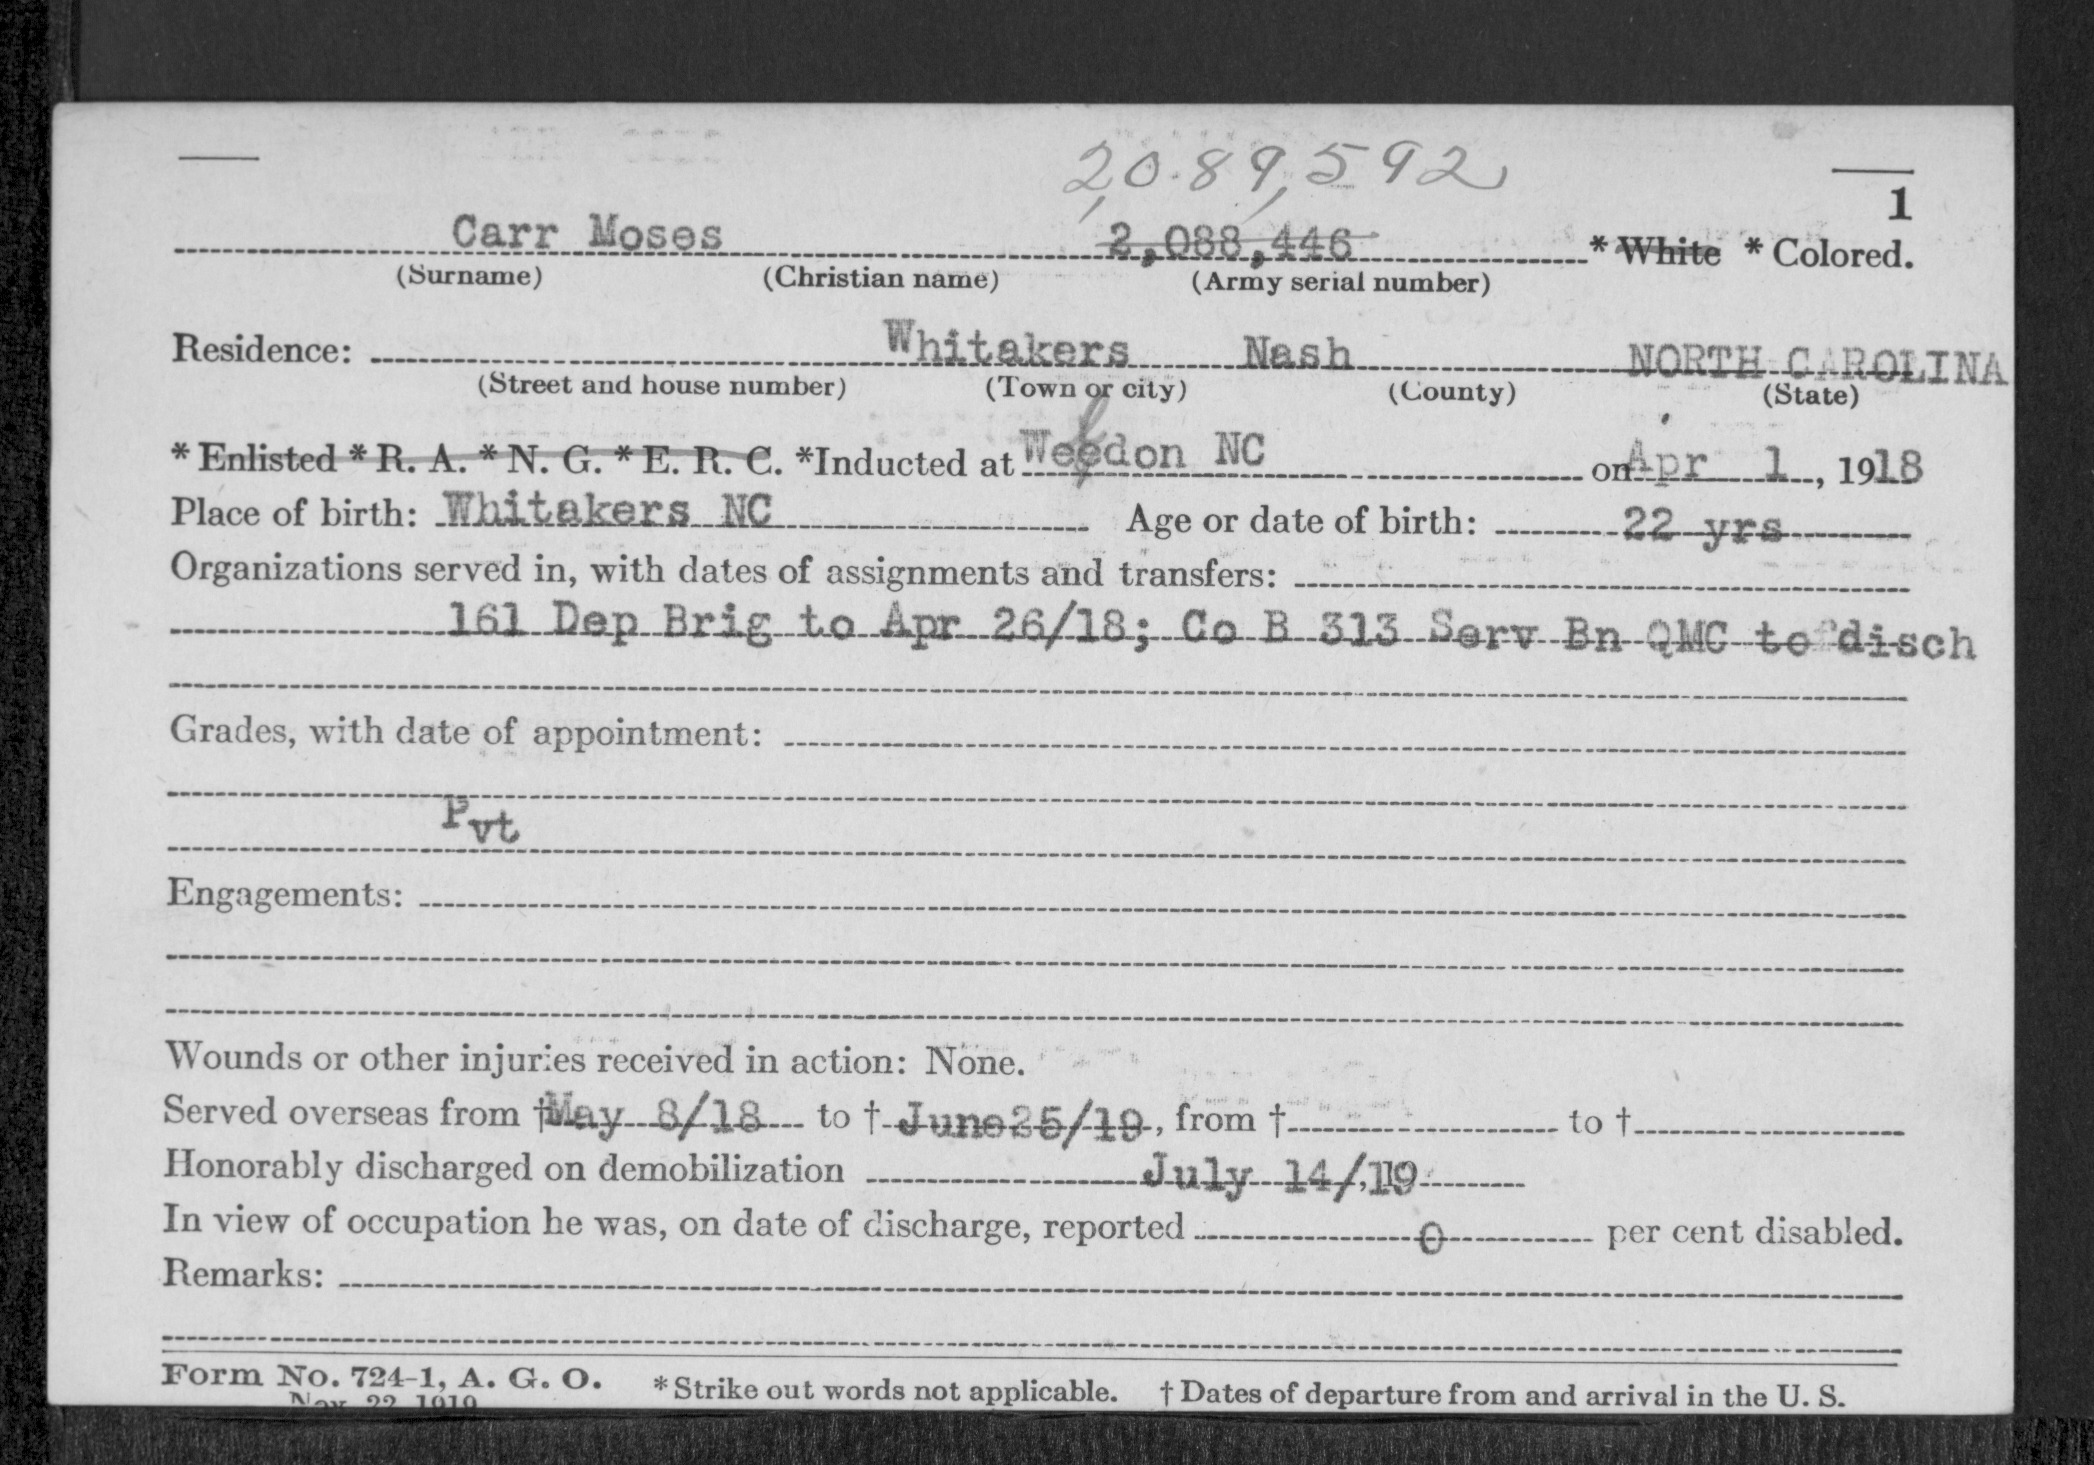 2,089,592
1
Carr Moses 2,088,446 * White * Colored.
(Surname) (Christian name) (Army serial number)
Residence: Whitakers Nash NORTH CAROLINA
(Street and house number) (Town or city) (County) (State)
* Enlisted * R. A. * N. G. * E. R. C. *Inducted at Weldon NC on Apr 1, 1918
Place of birth: Whitakers NC Age or date of birth: 22 yrs
Organizations served in, with dates of assignments and transfers:
161 Dep Brig to Apr 26/18; Co B 313 Serv Bn QMC to disch
Grades, with date of appointment:
Pvt
Engagements:
Wounds or other injuries received in action: None.
Served overseas from † May 8/18 to † June 25/19, from † to †
Honorably discharged on demobilization July 14/, 19
In view of occupation he was, on date of discharge, reported 0 per cent disabled.
Remarks:
Form No. 724-1, A. G. O. * Strike out words not applicable. † Dates of departure from and arrival in the U. S.
Nov. 22 1919